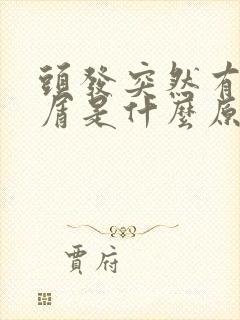 頭發突然有
屑是什麼原
賈府